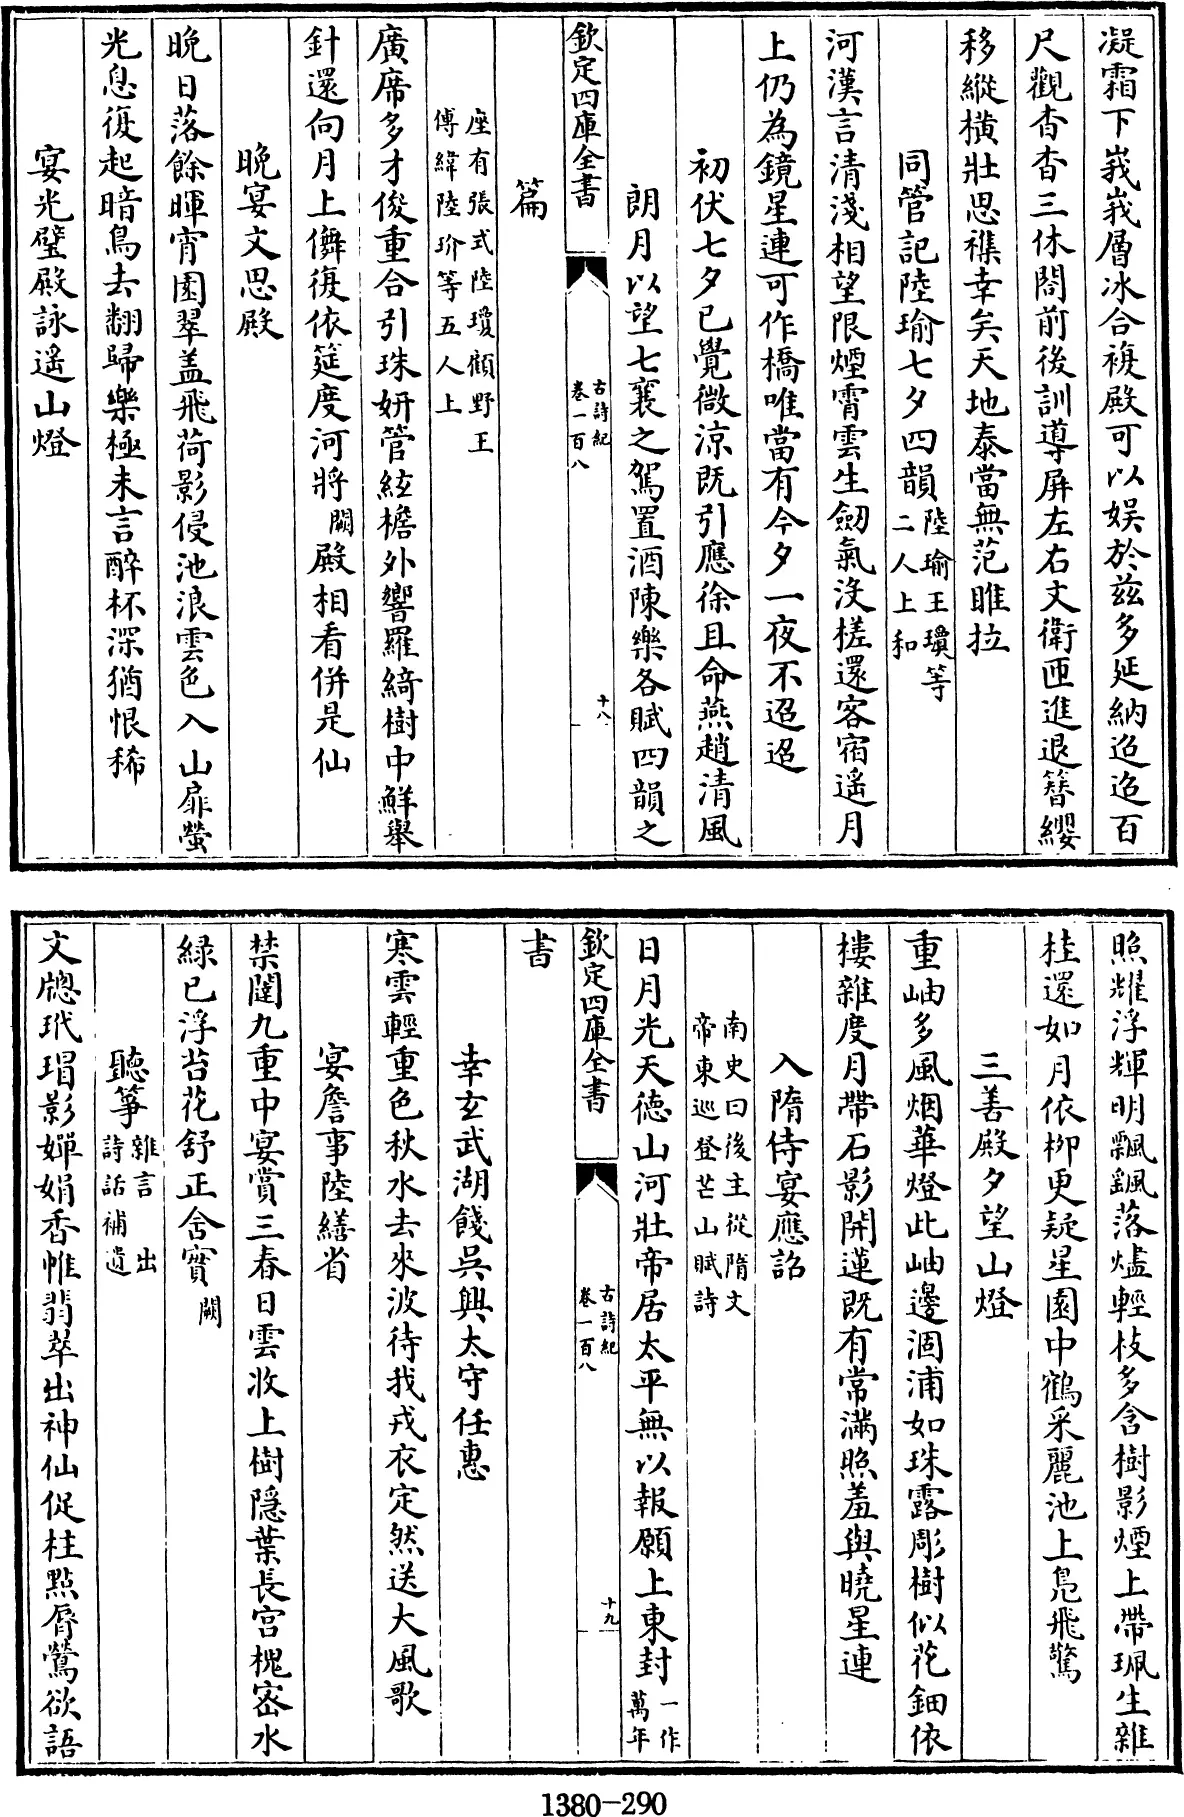 凝霜下峩峩層冰合複殿可以娱於兹多延納迢迢百
尺觀杳杳三休閤前後訓導屏左右文衛匝進退簪纓
移縱橫壯思襍幸矣天地泰當無范睢拉
同管記陸瑜七夕四韻陸瑜王瓊等二人上和
河漢言清淺相望限煙霄雲生劒氣没槎還客宿遥月
上仍為鏡星連可作橋唯當有今夕一夜不迢迢
初伏七夕已覺微涼既引應徐且命燕趙清風
朗月以望七襄之駕置酒陳樂各賦四韻之
欽定四庫全書 古詩紀卷一百八 十八
篇
座有張式陸瓊顧野王傅緯陸玠等五人上
廣席多才俊重合引珠妍管絃檐外響羅綺樹中鮮舉
針還向月上僯復依筵度河將闕殿相看併是仙
晚宴文思殿
晚日落餘暉宵園翠盖飛荷影侵池浪雲色入山扉螢
光息復起暗鳥去翻歸樂極未言醉杯深猶恨稀
宴光璧殿詠遥山燈
照耀浮輝明飄颻落燼輕枝多含樹影煙上帶珮生雜
桂還如月依柳更疑星園中鶴采麗池上鳧飛驚
三善殿夕望山燈
重岫多風烟華燈此岫邊涸浦如珠露彫樹似花鈿依
樓雜度月帶石影開蓮既有常滿照羞與曉星連
入隋侍宴應詔
南史曰後主從隋文帝東巡登芒山賦詩
日月光天德山河壯帝居太平無以報願上東封一作萬年
欽定四庫全書 古詩紀卷一百八 十九
書
幸玄武湖餞吳興太守任惠
寒雲輕重色秋水去來波待我戎衣定然送大風歌
宴詹事陸繕省
禁闥九重中宴賞三春日雲收上樹隱葉長宫槐密水
緑已浮苔花舒正含實闕
聽箏雜言 出詩話補遺
文牕玳瑁影嬋娟香帷翡翠出神仙促柱㸃脣鶯欲語
1380-290